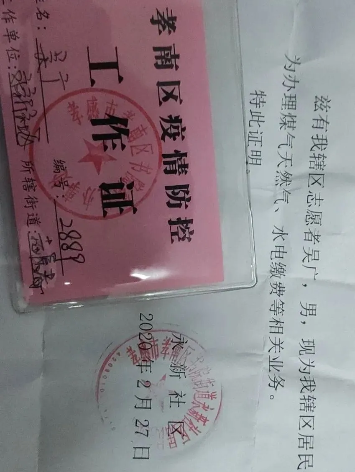 孝南区疫情防控
工作证
编号：2889
姓名：吴广
工作单位：
所辖街道：
兹有我辖区志愿者吴广，男，现为我辖区居民
为办理煤气天然气、水电缴费等相关业务。
特此证明。
永新社区
2020年2月27日